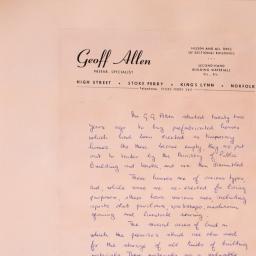 Geoff Allen
PREFAB SPECIALIST
NISSEN AND ALL TYPES
OF SECTIONAL BUILDINGS
SECOND-HAND
BUILDING MATERIALS
Etc., Etc.
HIGH STREET • STOKE FERRY • KING'S LYNN • NORFOLK
Mr G.G. Allen started twenty two
years ago to buy prefabricated houses
which had been erected as temporary
homes. As these became empty they are put
out to tender by the Ministry of Public
Building and Works, and are then dismantled
These homes are of various types
and, while some are re-erected for living
purposes, others have various uses, including
sports club pavilions, workshops, mushroom
growing and livestock rearing.
The several acres of land on
which the premises stand are also used
for the storage of all kinds of building
materials. These materials are a valuable